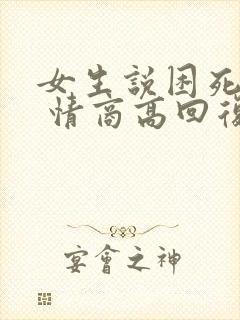 女生説困死
情商高回復
宴會之神